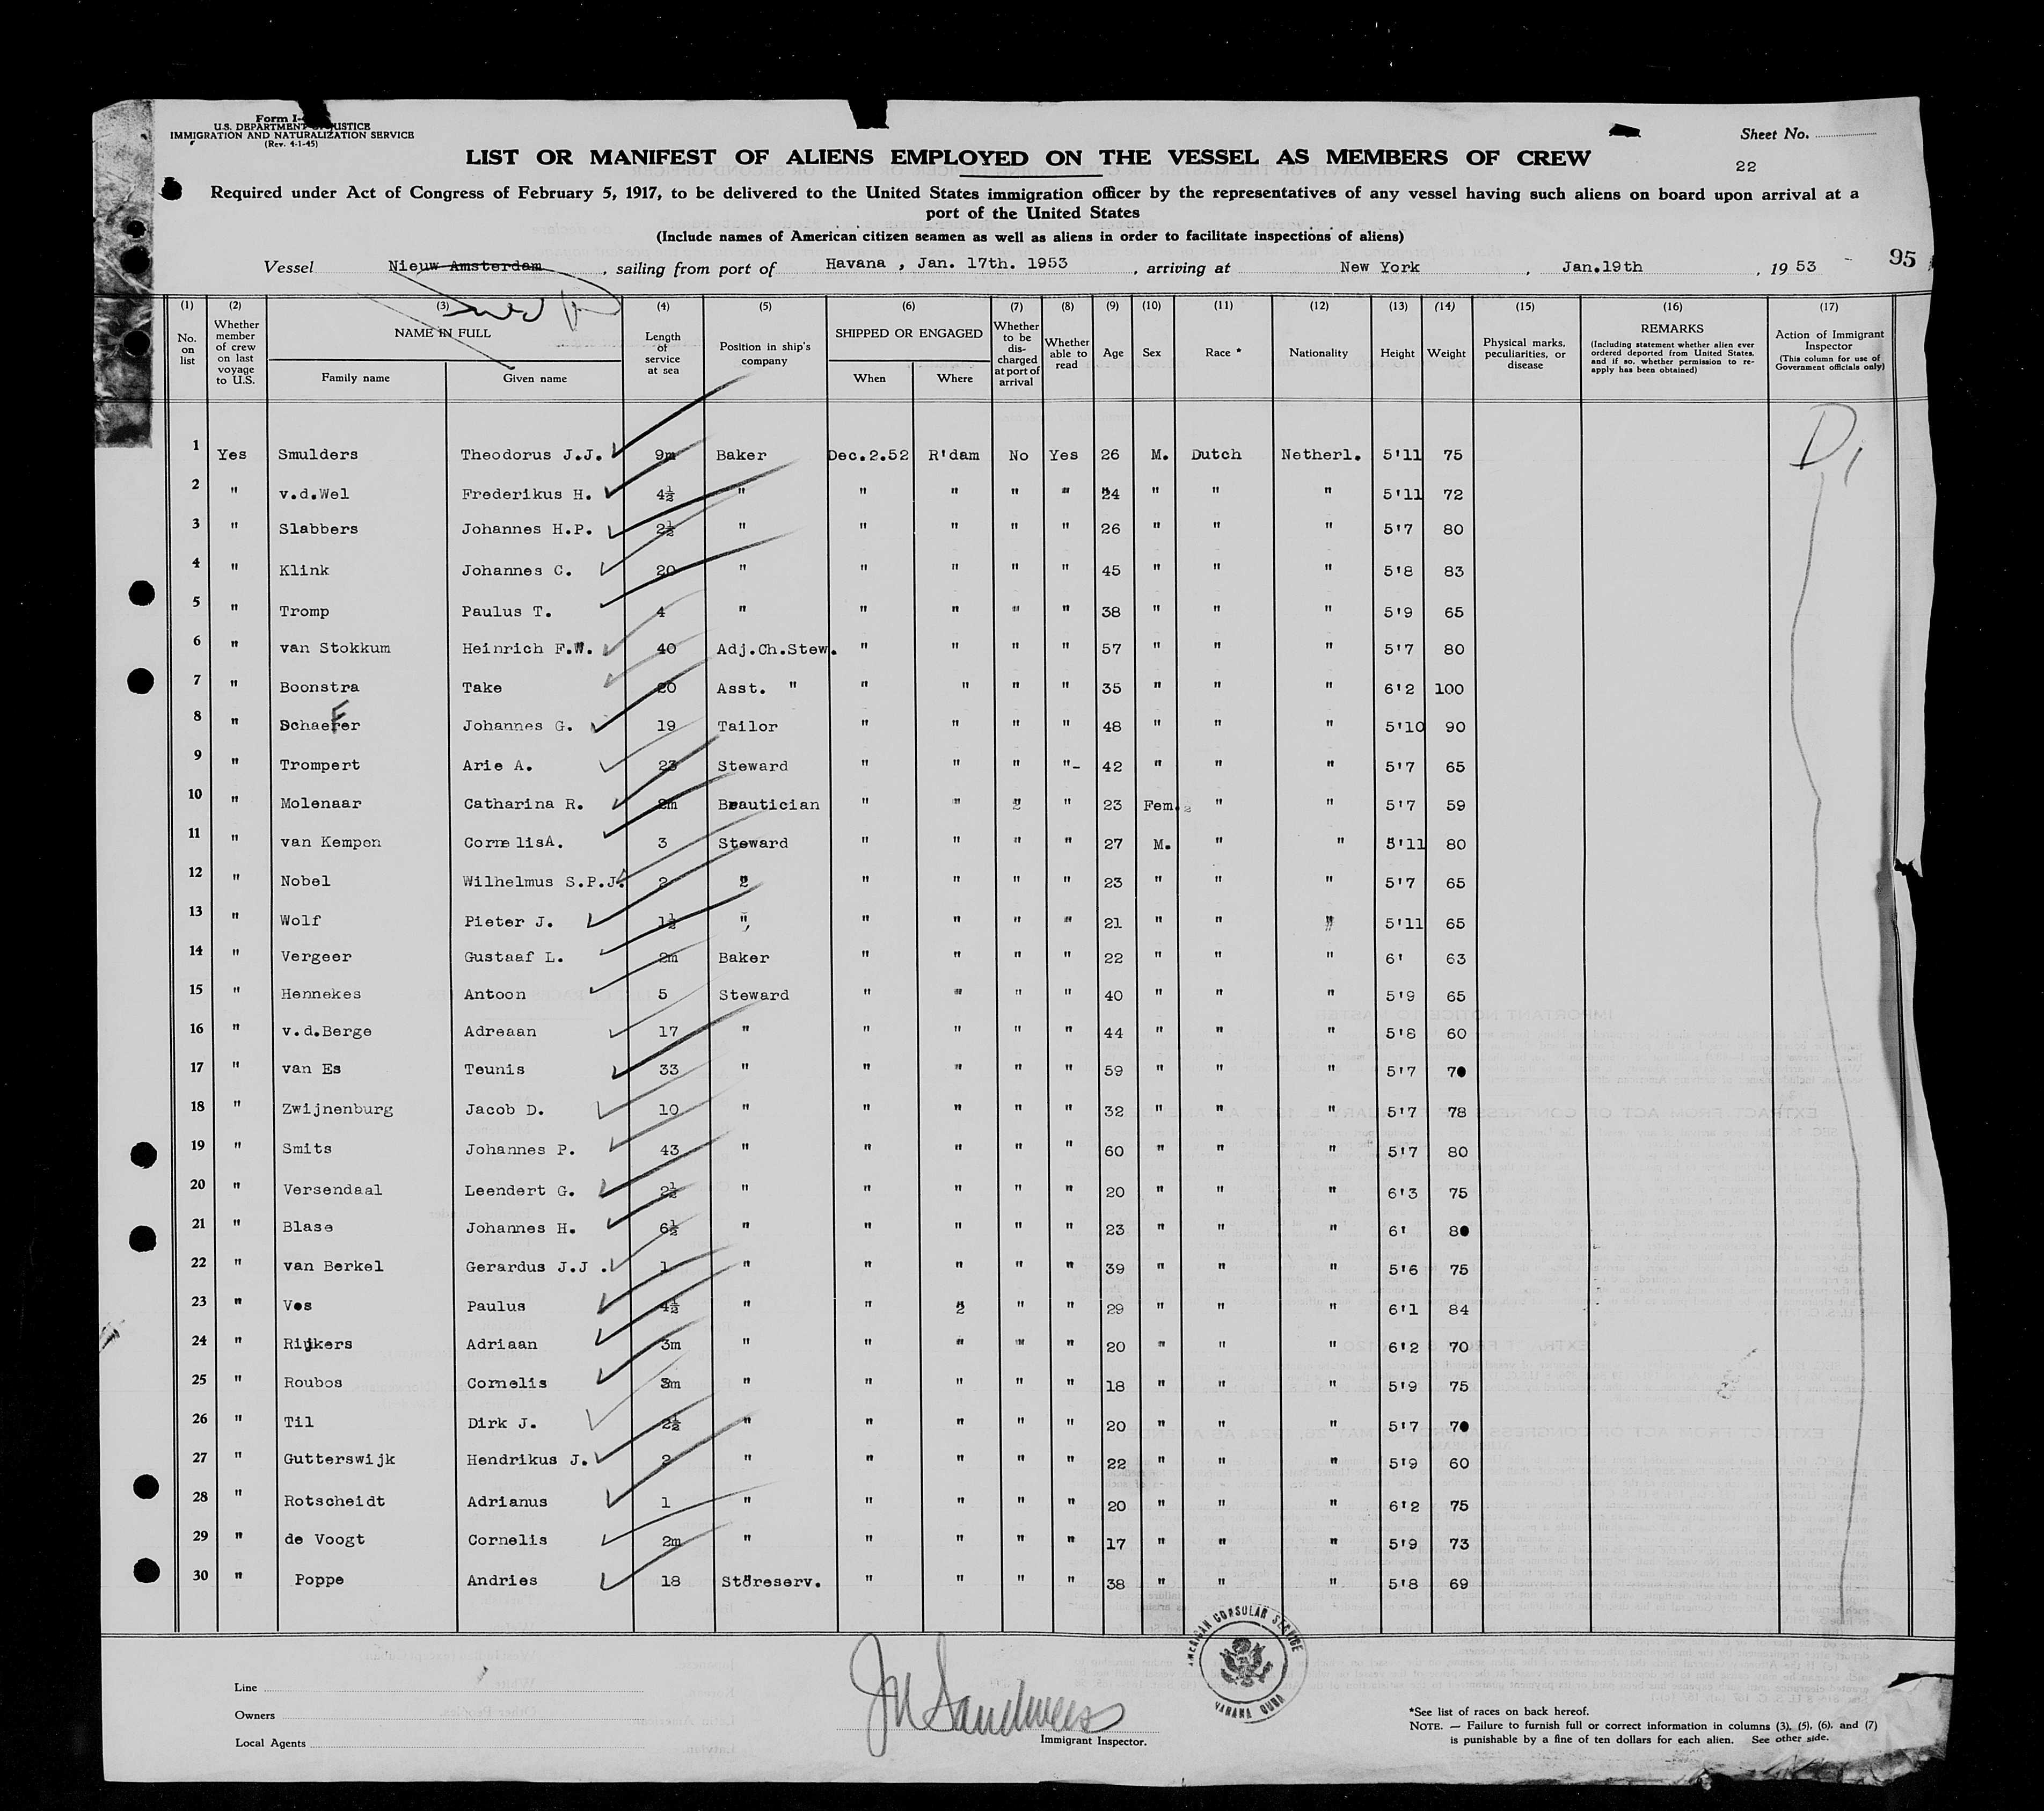 Form I-
U.S. DEPARTMENT OF JUSTICE
IMMIGRATION AND NATURALIZATION SERVICE
(Rev. 4-1-45)
Sheet No.
22
LIST OR MANIFEST OF ALIENS EMPLOYED ON THE VESSEL AS MEMBERS OF CREW
Required under Act of Congress of February 5, 1917, to be delivered to the United States immigration officer by the representatives of any vessel having such aliens on board upon arrival at a
port of the United States
(Include names of American citizen seamen as well as aliens in order to facilitate inspections of aliens)
95
Vessel Nieuw Amsterdam, sailing from port of Havana , Jan. 17th. 1953, arriving at New York, Jan.19th, 19 53
(1) No. on list
(2) Whether member of crew on last voyage to U.S.
(3) NAME IN FULL Family name Given name
(4) Length of service at sea
(5) Position in ship's company
(6) SHIPPED OR ENGAGED When Where
(7) Whether to be discharged at port of arrival
(8) Whether able to read
(9) Age
(10) Sex
(11) Race *
(12) Nationality
(13) Height
(14) Weight
(15) Physical marks, peculiarities, or disease
(16) REMARKS (Including statement whether alien ever ordered deported from United States, and if so, whether permission to re-apply has been obtained)
(17) Action of Immigrant Inspector (This column for use of Government officials only)
1 Yes Smulders Theodorus J.J. 9m Baker Dec.2.52 R'dam No Yes 26 M. Dutch Netherl. 5'11 75
2 " v.d.Wel Frederikus H. 4½ " " " " " 24 " " " 5'11 72
3 " Slabbers Johannes H.P. 2½ " " " " " 26 " " " 5'7 80
4 " Klink Johannes C. 20 " " " " " 45 " " " 5'8 83
5 " Tromp Paulus T. 4 " " " " " 38 " " " 5'9 65
6 " van Stokkum Heinrich F.W. 40 Adj.Ch.Stew. " " " " 57 " " " 5'7 80
7 " Boonstra Take 20 Asst. " " " " " 35 " " " 6'2 100
8 " Schaefer Johannes G. 19 Tailor " " " " 48 " " " 5'10 90
9 " Trompert Arie A. 23 Steward " " " "- 42 " " " 5'7 65
10 " Molenaar Catharina R. 2m Beautician " " " " 23 Fem. " " 5'7 59
11 " van Kempen CornelisA. 3 Steward " " " " 27 M. " " 5'11 80
12 " Nobel Wilhelmus S.P.J. 2 " " " " " 23 " " " 5'7 65
13 " Wolf Pieter J. 1½ " " " " " 21 " " " 5'11 65
14 " Vergeer Gustaaf L. 2m Baker " " " " 22 " " " 6' 63
15 " Hennekes Antoon 5 Steward " " " " 40 " " " 5'9 65
16 " v.d.Berge Adreaan 17 " " " " " 44 " " " 5'8 60
17 " van Es Teunis 33 " " " " " 59 " " " 5'7 70
18 " Zwijnenburg Jacob D. 10 " " " " " 32 " " " 5'7 78
19 " Smits Johannes P. 43 " " " " " 60 " " " 5'7 80
20 " Versendaal Leendert G. 2½ " " " " " 20 " " " 6'3 75
21 " Blase Johannes H. 6½ " " " " " 23 " " " 6' 80
22 " van Berkel Gerardus J.J . 1 " " " " " 39 " " " 5'6 75
23 " Vos Paulus 4½ " " " " " 29 " " " 6'1 84
24 " Rijkers Adriaan 3m " " " " " 20 " " " 6'2 70
25 " Roubos Cornelis 3m " " " " " 18 " " " 5'9 75
26 " Til Dirk J. 2½ " " " " " 20 " " " 5'7 70
27 " Gutterswijk Hendrikus J. 2 " " " " " 22 " " " 5'9 60
28 " Rotscheidt Adrianus 1 " " " " " 20 " " " 6'2 75
29 " de Voogt Cornelis 2m " " " " " 17 " " " 5'9 73
30 " Poppe Andries 18 Storeserv. " " " " 38 " " " 5'8 69
AMERICAN CONSULAR SERVICE
HAVANA CUBA
Line
Owners
Local Agents
Immigrant Inspector.
*See list of races on back hereof.
NOTE. — Failure to furnish full or correct information in columns (3), (5), (6), and (7)
is punishable by a fine of ten dollars for each alien. See other side.